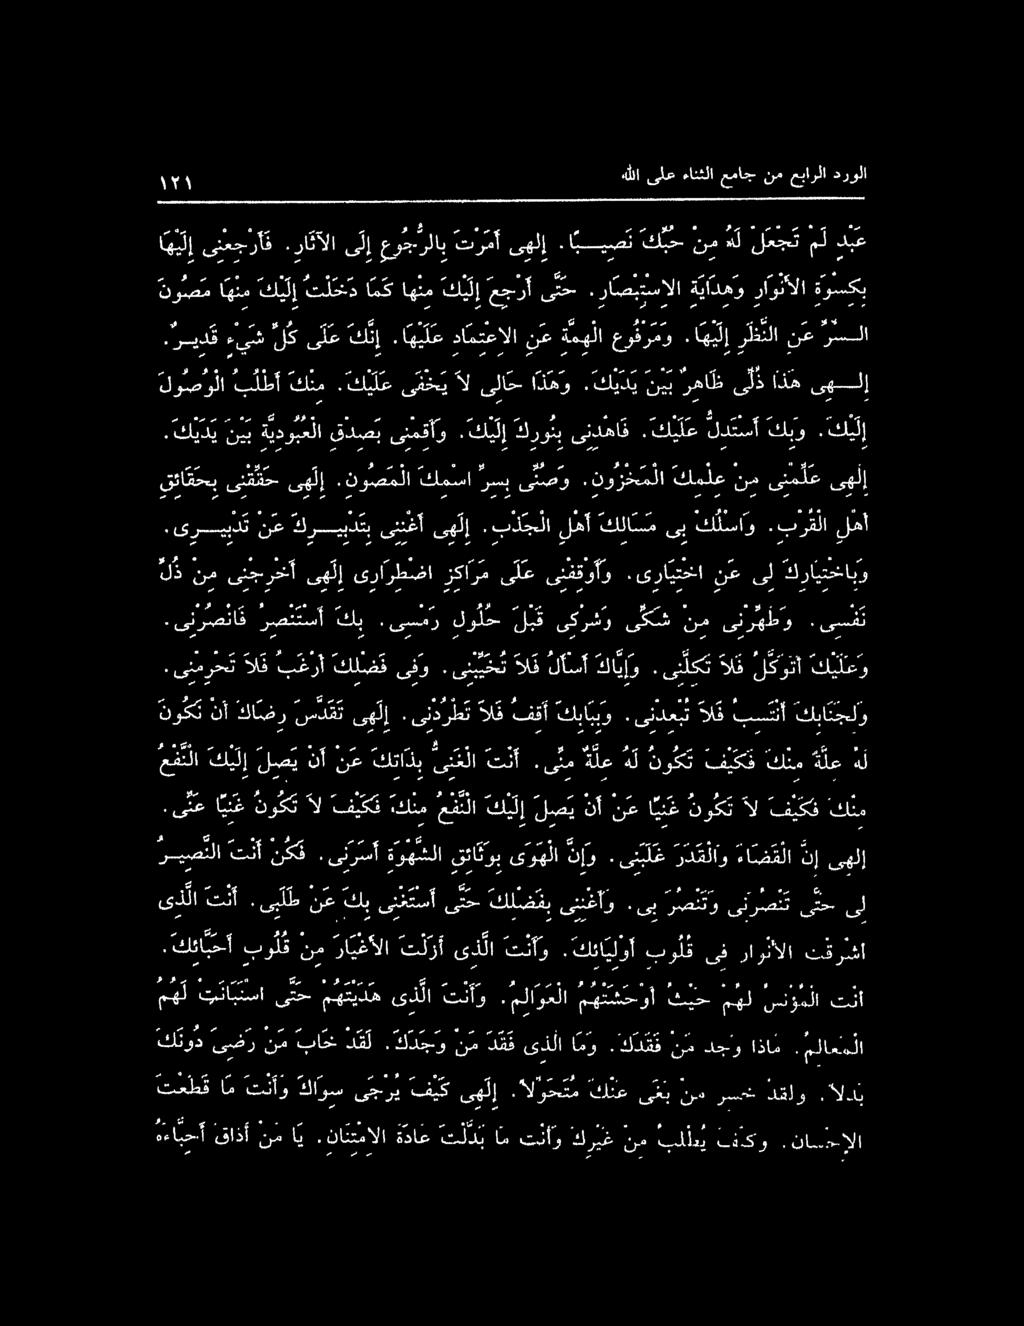 الورد الرابع من جامع الثناء على الله ١٢١
عَبْدٍ لَمْ تَجْعَلْ لَهُ مِنْ حُبِّكَ نَصِيـــبًا. إِلٰهِى أَمَرْتَ بِالرُّجُوعِ إِلَى الآثَارِ. فَأَرْجِعْنِى إِلَيْهَا
بِكِسْوَةِ الأَنْوَارِ وَهِدَايَةِ الاِسْتِبْصَارِ. حَتَّى أَرْجِعَ إِلَيْكَ مِنْهَا كَمَا دَخَلْتُ إِلَيْكَ مِنْهَا مَصُونَ
الـــسِّرِّ عَنِ النَّظَرِ إِلَيْهَا. وَمَرْفُوعَ الْهِمَّةِ عَنِ الاِعْتِمَادِ عَلَيْهَا. إِنَّكَ عَلَى كُلِّ شَيْءٍ قَدِيـــرٌ.
إِلـــهِى هٰذَا ذُلِّى ظَاهِرٌ بَيْنَ يَدَيْكَ. وَهٰذَا حَالِى لاَ يَخْفَى عَلَيْكَ. مِنْكَ أَطْلُبُ الْوُصُولَ
إِلَيْكَ. وَبِكَ أَسْتَدِلُّ عَلَيْكَ. فَاهْدِنِى بِنُورِكَ إِلَيْكَ. وَأَقِمْنِى بِصِدْقِ الْعُبُودِيَّةِ بَيْنَ يَدَيْكَ.
إِلٰهِى عَلِّمْنِى مِنْ عِلْمِكَ الْمَخْزُونِ. وَصُنِّى بِسِرِّ اسْمِكَ الْمَصُونِ. إِلٰهِى حَقِّقْنِى بِحَقَائِقِ
أَهْلِ الْقُرْبِ. وَاسْلُكْ بِى مَسَالِكَ أَهْلِ الْجَذْبِ. إِلٰهِى أَغْنِنِى بِتَدْبِيـــرِكَ عَنْ تَدْبِيـــرِى.
وَبِاخْتِيَارِكَ لِى عَنِ اخْتِيَارِى. وَأَوْقِفْنِى عَلَى مَرَاكِزِ اضْطِرَارِى إِلٰهِى أَخْرِجْنِى مِنْ ذُلِّ
نَفْسِى. وَطَهِّرْنِى مِنْ شَكِّى وَشِرْكِى قَبْلَ حُلُولِ رَمْسِى. بِكَ أَسْتَنْصِرُ فَانْصُرْنِى.
وَعَلَيْكَ أَتَوَكَّلُ فَلاَ تَكِلْنِى. وَإِيَّاكَ أَسْأَلُ فَلاَ تُخَيِّبْنِى. وَفِى فَضْلِكَ أَرْغَبُ فَلاَ تَحْرِمْنِى.
وَلِجَنَابِكَ أَنْتَسِبُ فَلاَ تُبْعِدْنِى. وَبِبَابِكَ أَقِفُ فَلاَ تَطْرُدْنِى. إِلٰهِى تَقَدَّسَ رِضَاكَ أَنْ تَكُونَ
لَهُ عِلَّةٌ مِنْكَ فَكَيْفَ تَكُونُ لَهُ عِلَّةٌ مِنِّى. أَنْتَ الْغَنِىُّ بِذَاتِكَ عَنْ أَنْ يَصِلَ إِلَيْكَ النَّفْعُ
مِنْكَ فَكَيْفَ لاَ تَكُونُ غَنِيًّا عَنْ أَنْ يَصِلَ إِلَيْكَ النَّفْعُ مِنْكَ فَكَيْفَ لاَ تَكُونُ غَنِيًّا عَنِّى.
إِلٰهِى إِنَّ الْقَضَاءَ وَالْقَدَرَ غَلَبَنِى. وَإِنَّ الْهَوَى بِوَثَائِقِ الشَّهْوَةِ أَسَرَنِى. فَكُنْ أَنْتَ النَّصِيـــرُ
لِى حَتَّى تَنْصُرَنِى وَتَنْصُرَ بِى. وَأَغْنِنِى بِفَضْلِكَ حَتَّى أَسْتَغْنِىَ بِكَ عَنْ طَلَبِى. أَنْتَ الَّذِى
أَشْرَقْتَ الأَنْوَارَ فِى قُلُوبِ أَوْلِيَائِكَ. وَأَنْتَ الَّذِى أَزَلْتَ الأَغْيَارَ مِنْ قُلُوبِ أَحِبَّائِكَ.
أَنْتَ الْمُؤْنِسُ لَهُمْ حَيْثُ أَوْحَشَتْهُمُ الْعَوَالِمُ. وَأَنْتَ الَّذِى هَدَيْتَهُمْ حَتَّى اسْتَبَانَتْ لَهُمُ
الْمَعَالِمُ. مَاذَا وَجَدَ مَنْ فَقَدَكَ. وَمَا الَّذِى فَقَدَ مَنْ وَجَدَكَ. لَقَدْ خَابَ مَنْ رَضِىَ دُونَكَ
بَدَلاً. وَلَقَدْ خَسِرَ مَنْ بَغَى عَنْكَ مُتَحَوِّلاً. إِلٰهِى كَيْفَ يُرْجَى سِوَاكَ وَأَنْتَ مَا قَطَعْتَ
الإِحْسَانَ. وَكَيْفَ يُطْلَبُ مِنْ غَيْرِكَ وَأَنْتَ مَا بَدَّلْتَ عَادَةَ الاِمْتِنَانِ. يَا مَنْ أَذَاقَ أَحِبَّاءَهُ